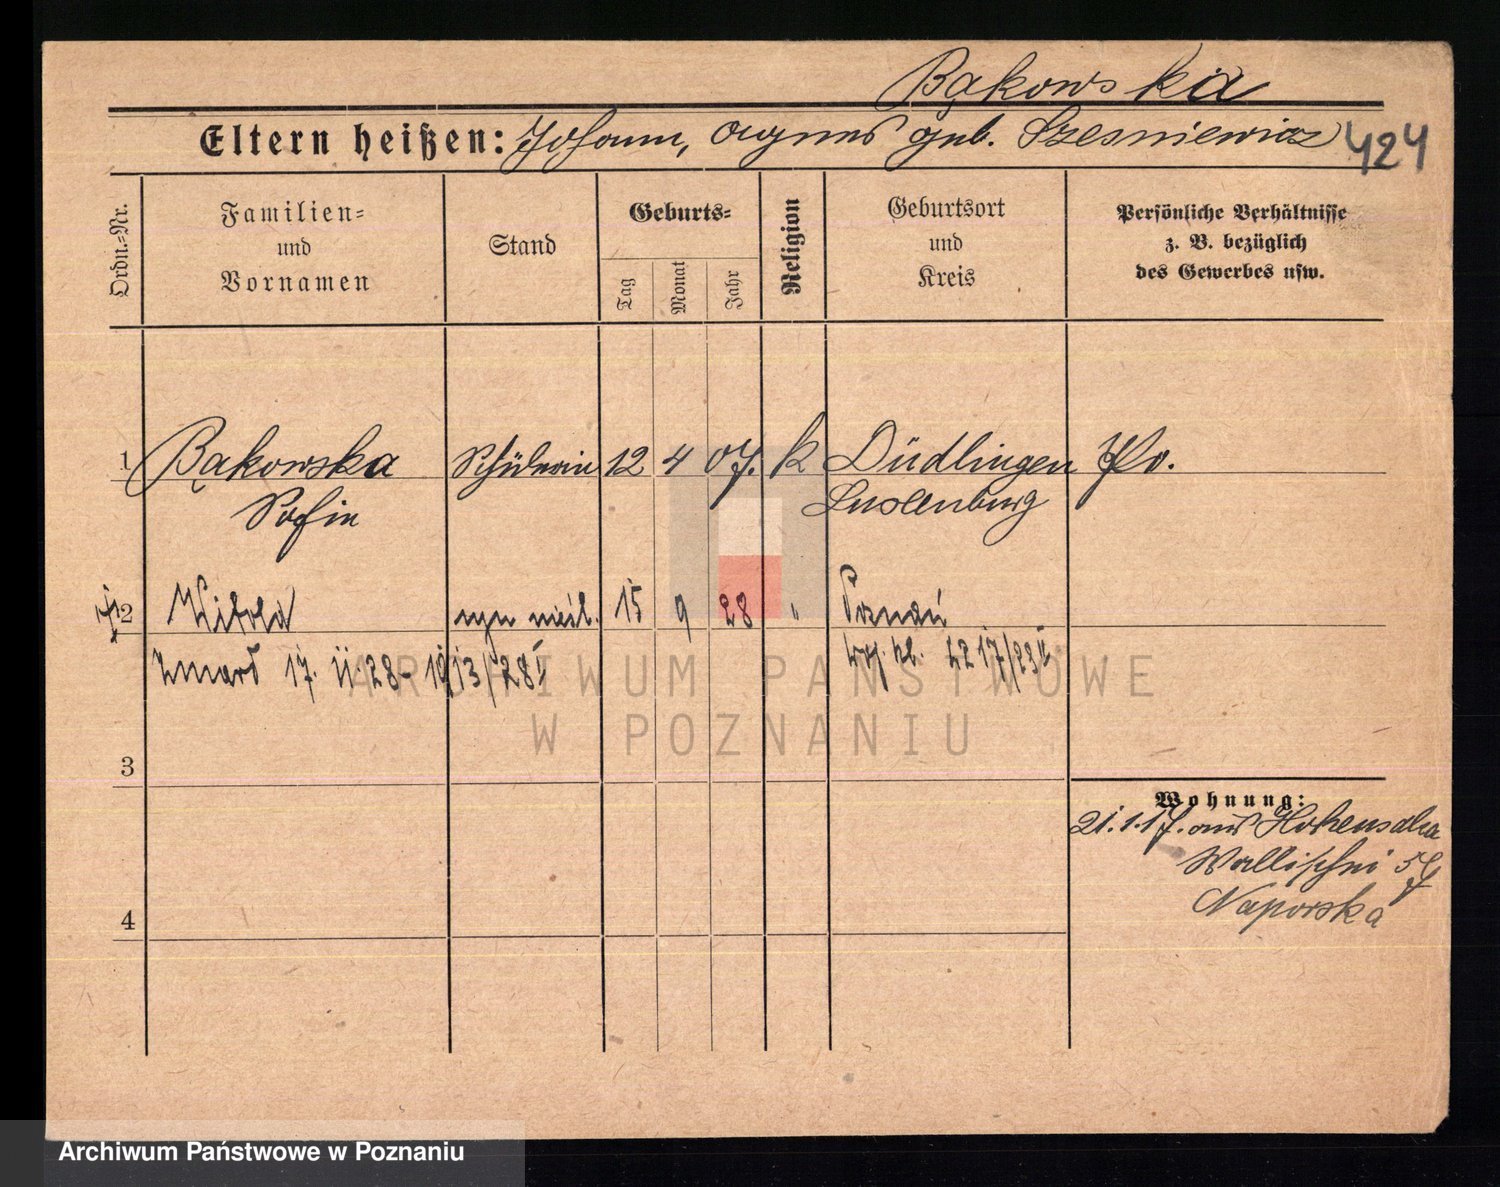 Bąkowska
Eltern heißen: Johann, Agnes geb. Szesniewicz 424
Ordn.-Nr.
Familien-
und
Vornamen
Stand
Geburts-
Tag
Monat
Jahr
Religion
Geburtsort
und
Kreis
Persönliche Verhältnisse
z. B. bezüglich
des Gewerbes usw.
1 Bąkowska Schülerin 12 4 07. k Düdlingen Po.
Sofie Luxenburg
2 Witold syn nieśl. 15 9 28 " Poznań
zmarł 17. 11 28 - 1913/28
3
Wohnung:
21.1.17. aus Hohensalza
Wallischei
Naporska
4
ARCHIWUM PAŃSTWOWE
W POZNANIU
Archiwum Państwowe w Poznaniu